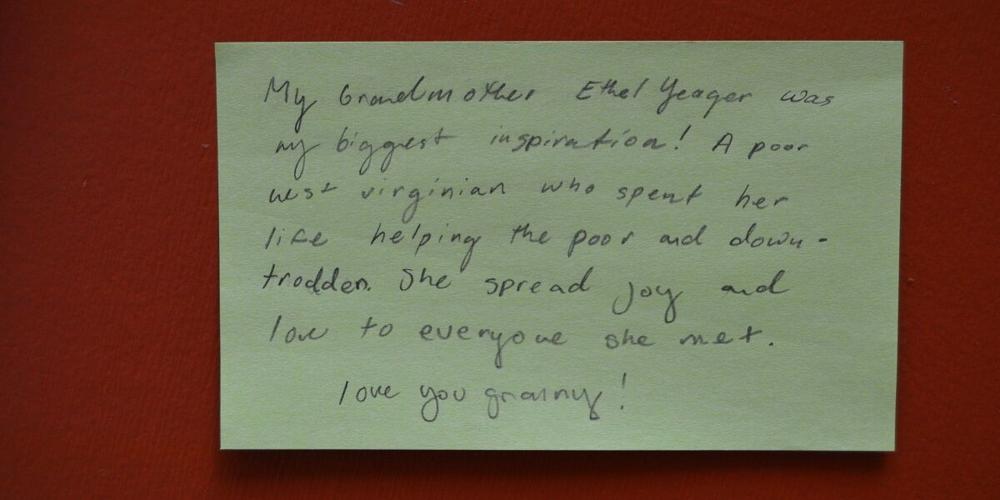 My Grandmother Ethel Yeager was
my biggest inspiration! A poor
west virginian who spent her
life helping the poor and down-
trodden. She spread joy and
love to everyone she met.
love you granny!